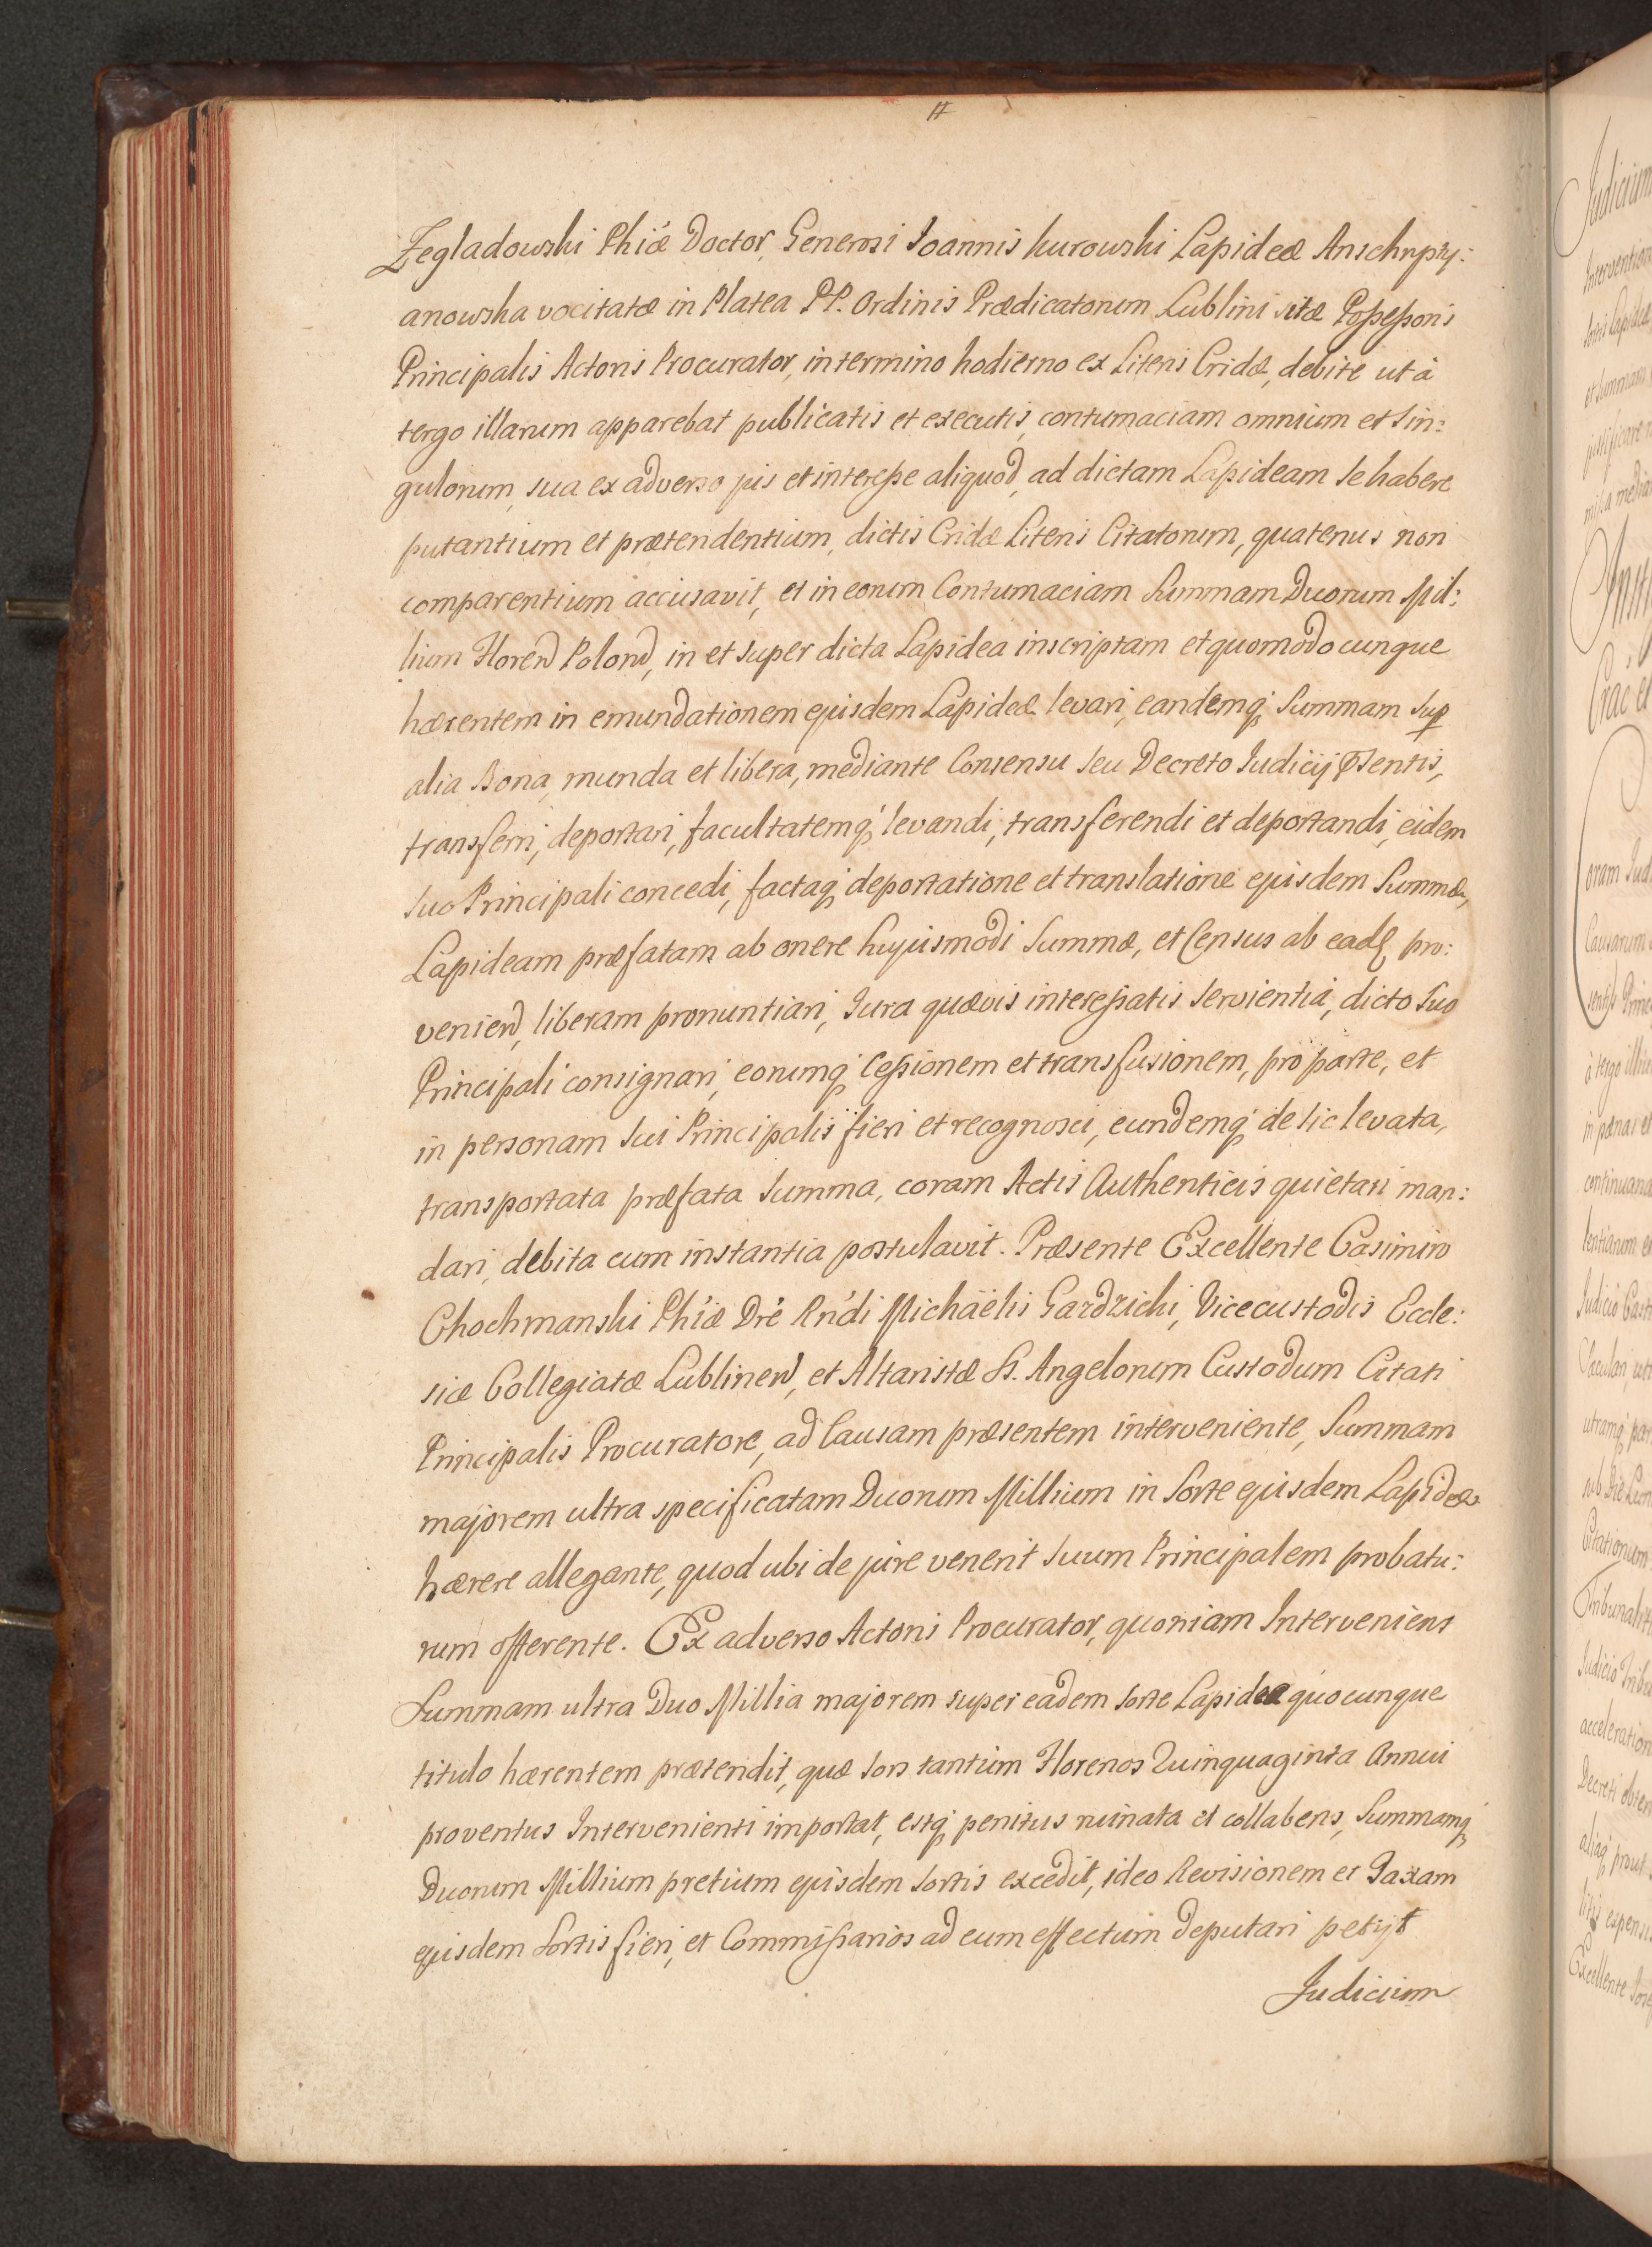 Zegladowski Phiæ Doctor, Generosi Joannis Kurowski Lapideæ Anschrypy:
anowska vocitatæ in Platea PP. Ordinis Prædicatorum Lublini sitæ Possessoris
Principalis Actoris Procurator, in termino hodierno ex Literis Cridæ, debite ut à
tergo illarum apparebat publicatis et executis, contumaciam omnium et sin:
gulorum, sua ex adverso jus et interesse aliquod, ad dictam Lapideam se habere
putantium et prætendentium, dictis Cridæ Literis Citatorum, quatenus non
comparentium accusavit, et in eorum Contumaciam Summam Duorum Mil:
lium Floren Polon, in et super dicta Lapidea inscriptam et quomodocunque
hærentem in emundationem ejusdem Lapideæ levari, eandemq Summam sup
alia Bona, munda et libera, mediante Consensu seu Decreto Judicij Psentis,
transferri, deportari, facultatemq levandi, transferendi et deportandi, eidem
suo Principali concedi, factaq deportatione et translatione ejusdem Summæ,
Lapideam præfatam ab onere hujusmodi Summæ, et Census ab ead pro:
venien, liberam pronuntiari, Jura quævis interessatis servientia, dicto suo
Principali consignari, eorumq Cessionem et transfusionem, pro parte, et
in personam sui Principalis fieri et recognosci, eundemq de sic levata,
transportata præfata Summa, coram Actis Authenticis quietari man:
dari, debita cum instantia postulavit. Præsente Excellente Casimiro
Chochmanski Phiæ Dre Rndi Michaëlis Gardzicki, Vicecustodis Eccle:
siæ Collegiatæ Lublinen, et Altaristæ SS. Angelorum Custodum Citati
Principalis Procuratore, ad Causam præsentem interveniente, Summam
majorem ultra specificatam Duorum Millium in Sorte ejusdem Lapideæ
hærere allegante, quod ubi de jure venerit suum Principalem probatu:
rum offerente. Ex adverso Actoris Procurator, quoniam Interveniens
Summam ultra Duo Millia majorem super eadem sorte Lapideæ quocunque
titulo hærentem prætendit, quæ sors tantum Florenos Quinquaginta Annui
proventus Intervenienti importat, estq penitus ruinata et collabens, Summamq
Duorum Millium pretium ejusdem sortis excedit, ideo Revisionem et Taxam
ejusdem Sortis fieri, et Commissarios ad eum effectum deputari petijt
Judicium